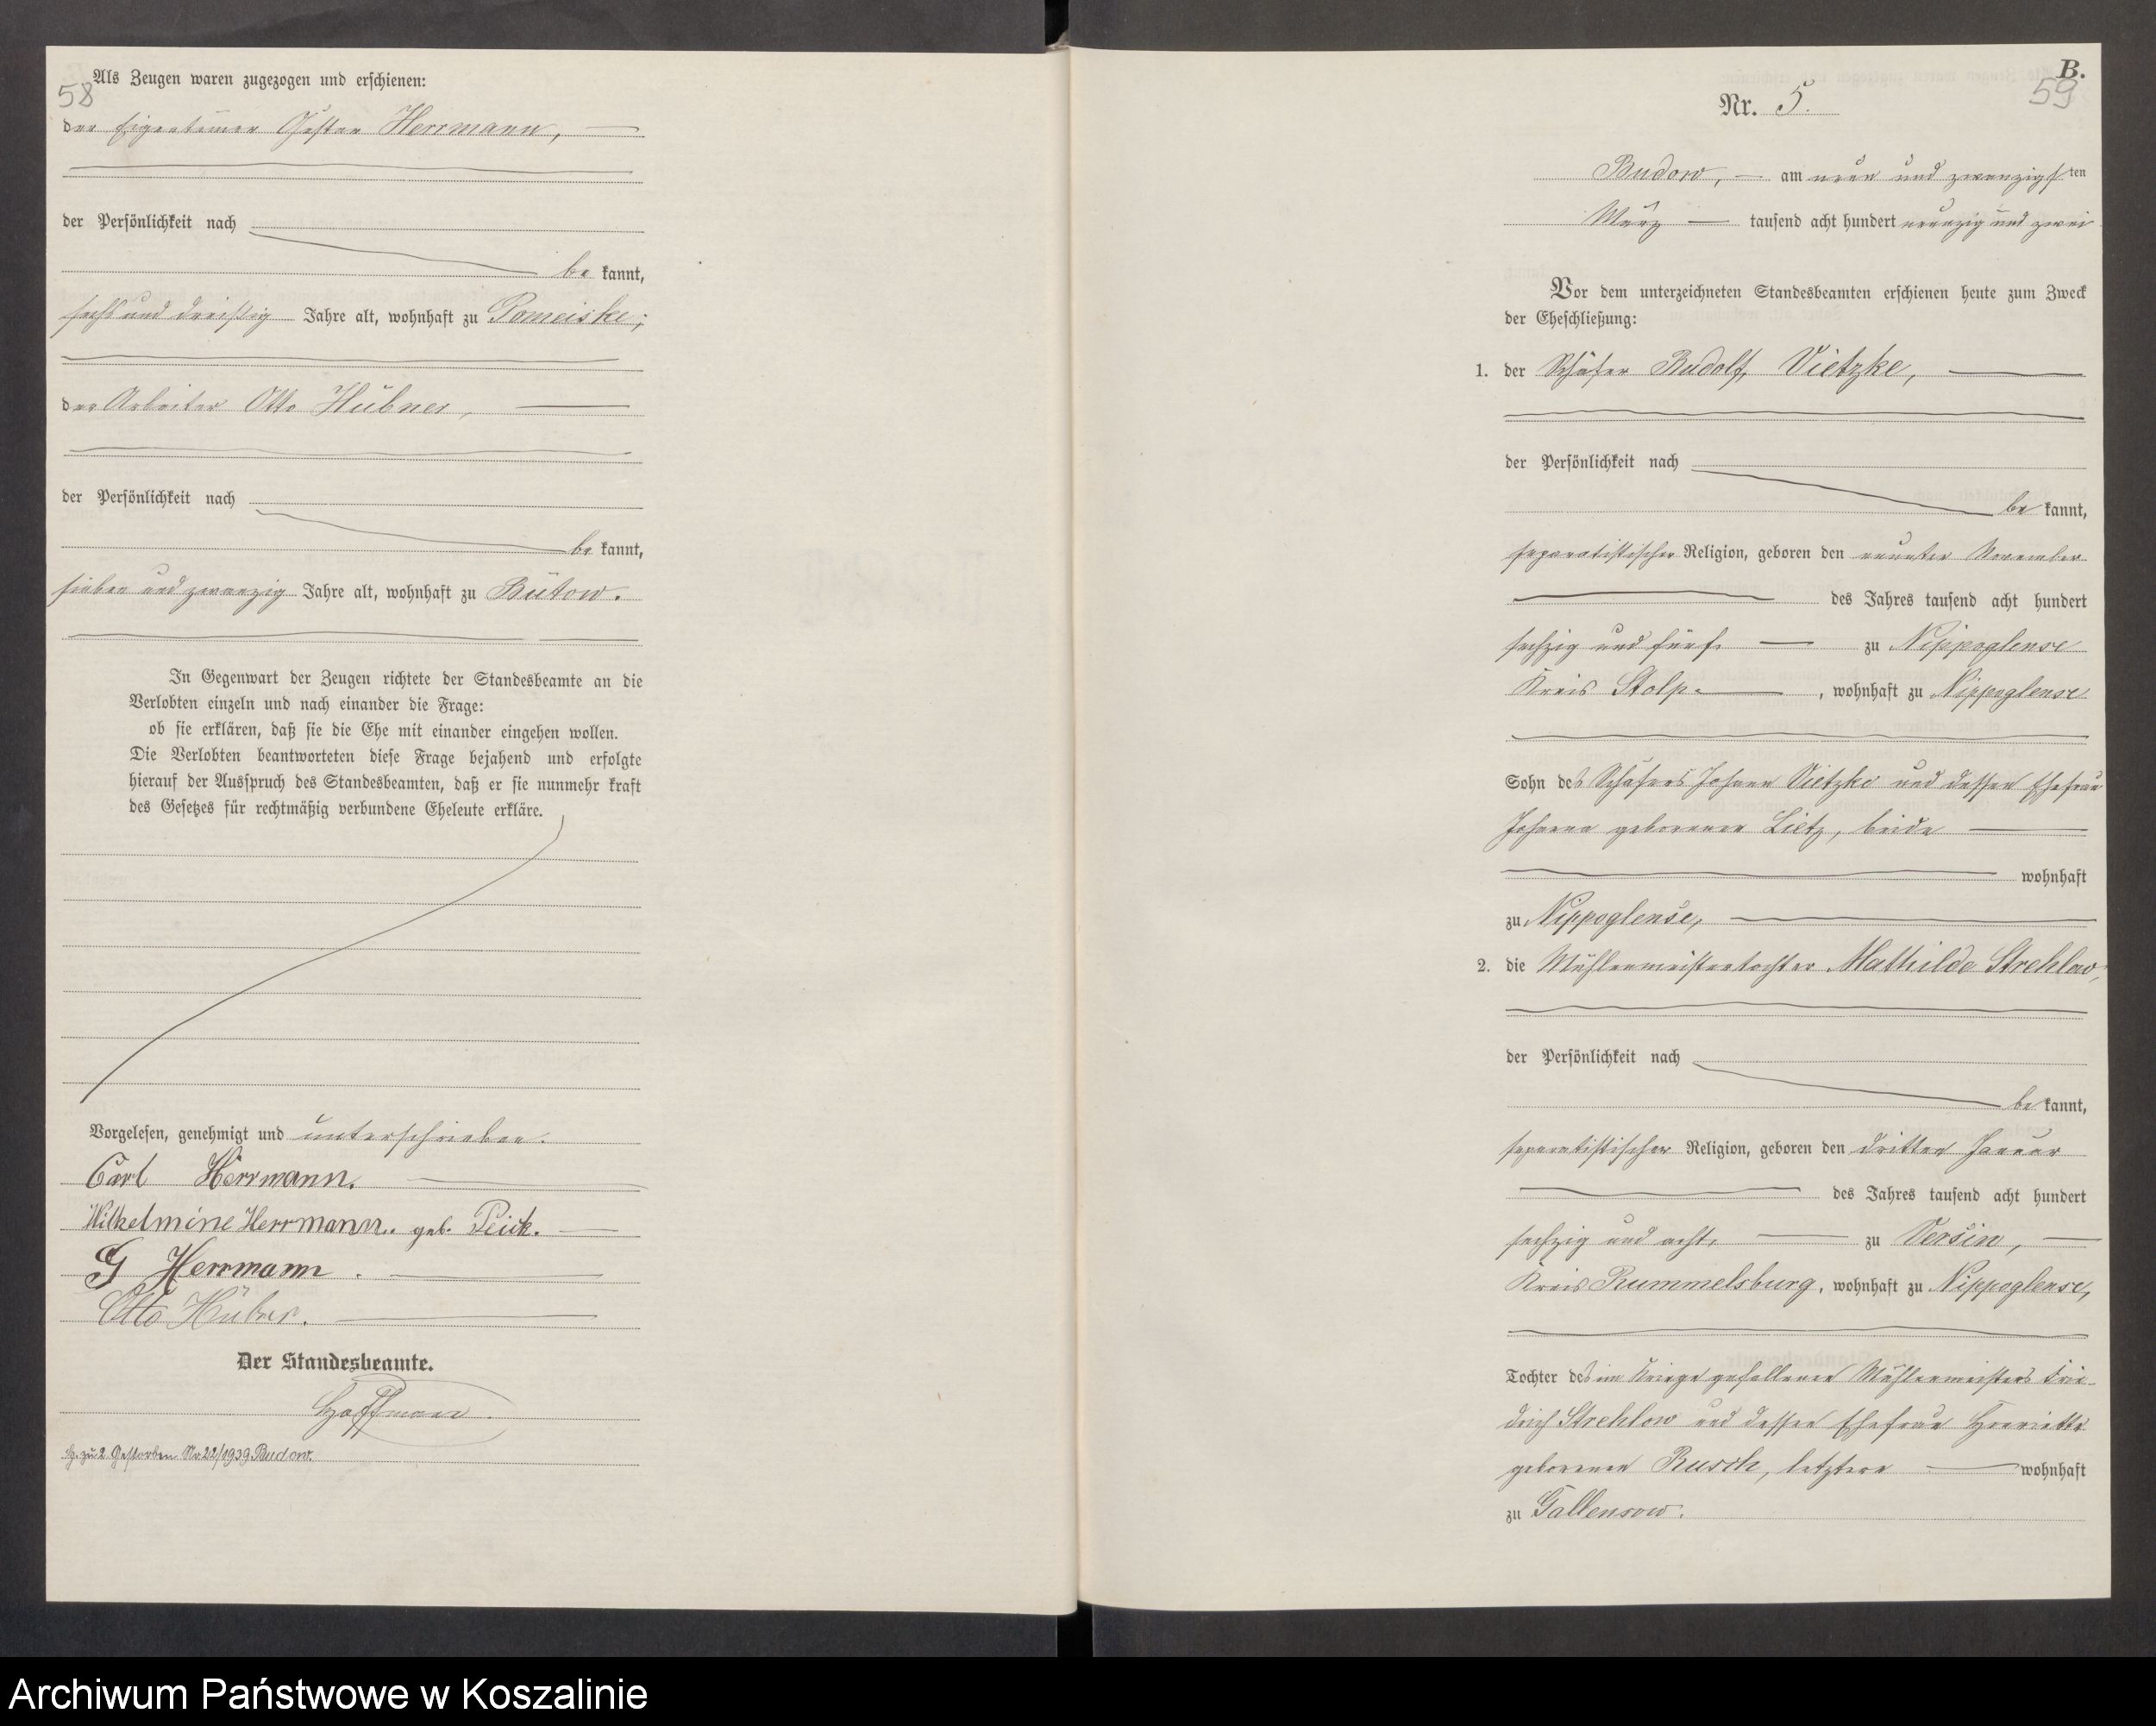 Als Zeugen waren zugezogen und erschienen:
58
der Eigentümer Gustav Herrmann,
der Persönlichkeit nach
be kannt,
sechs und dreißig Jahre alt, wohnhaft zu Pomeiske;
der Arbeiter Otto Hübner,
der Persönlichkeit nach
be kannt,
sieben und zwanzig Jahre alt, wohnhaft zu Bütow.
In Gegenwart der Zeugen richtete der Standesbeamte an die
Verlobten einzeln und nach einander die Frage:
ob sie erklären, daß sie die Ehe mit einander eingehen wollen.
Die Verlobten beantworteten diese Frage bejahend und erfolgte
hierauf der Ausspruch des Standesbeamten, daß er sie nunmehr kraft
des Gesetzes für rechtmäßig verbundene Eheleute erkläre.
Vorgelesen, genehmigt und unterschrieben.
Carl Herrmann.
Wilhelmine Herrmann. geb. Peick.
G Herrmann.
Otto Hübner.
Der Standesbeamte.
Hoffmann.
zu 2 Gestorben Nr. 22/1939 Budow.
B.
59
Nr. 5.
Budow, am neun und zwanzigsten
März tausend acht hundert neunzig und zwei
Vor dem unterzeichneten Standesbeamten erschienen heute zum Zweck
der Eheschließung:
1. der Schäfer Rudolf Vietzke,
der Persönlichkeit nach
be kannt,
separatistischer Religion, geboren den neunten November
des Jahres tausend acht hundert
sechzig und fünf zu Nippoglense
Kreis Stolp, wohnhaft zu Nippoglense
Sohn des Schäfers Johann Vietzke und dessen Ehefrau
Johanna geborenen Lietz, beide
wohnhaft
zu Nippoglense,
2. die Mühlenmeistertochter Mathilde Strehlow,
der Persönlichkeit nach
be kannt,
separatistischer Religion, geboren den dritten Januar
des Jahres tausend acht hundert
sechzig und acht zu Versin,
Kreis Rummelsburg, wohnhaft zu Nippoglense,
Tochter des im Kriege gefallenen Mühlenmeisters Frie-
drich Strehlow und dessen Ehefrau Henriette
geborenen Rusch, letztere wohnhaft
zu Gallensow.
Archiwum Państwowe w Koszalinie